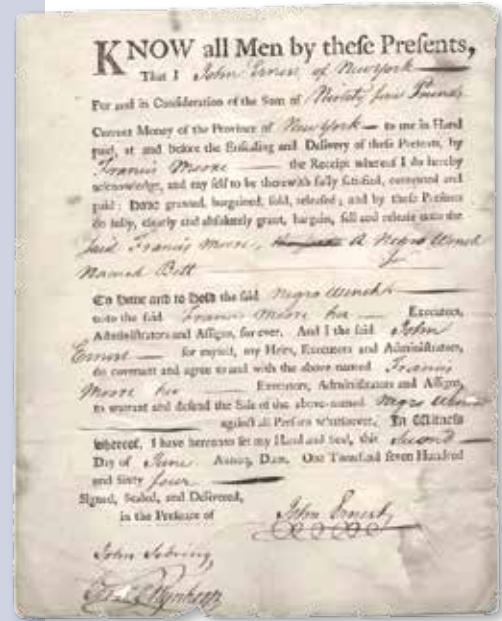 KNOW all Men by these Presents,
That I John Ernest of New york
For and in Consideration of the Sum of Ninety five Pounds
Current Money of the Province of New York — to me in Hand
paid, at and before the Ensealing and Delivery of these Presents, by
Francis Moore — the Receipt whereof I do hereby
acknowledge, and my self to be therewith fully satisfied, contented and
paid: HAVE granted, bargained, sold, released; and by these Presents
do fully, clearly and absolutely grant, bargain, sell and release unto the
said Francis Moore, A Negro Wench
Named Bett
To Have and to Hold the said Negro Wench
unto the said Francis Moore her Executors,
Administrators and Assigns, for ever. And I the said John
Ernest — for myself, my Heirs, Executors and Administrators,
do covenant and agree to and with the above named Francis
Moore her Executors, Administrators and Assigns,
to warrant and defend the Sale of the above-named Negro Wench
against all Persons whatsoever. In Witness
whereof, I have hereunto set my Hand and Seal, this Second
Day of June Annoq; Dom. One Thousand seven Hundred
and Sixty four
Signed, Sealed, and Delivered,
in the Presence of
John Ernest
John Sebring